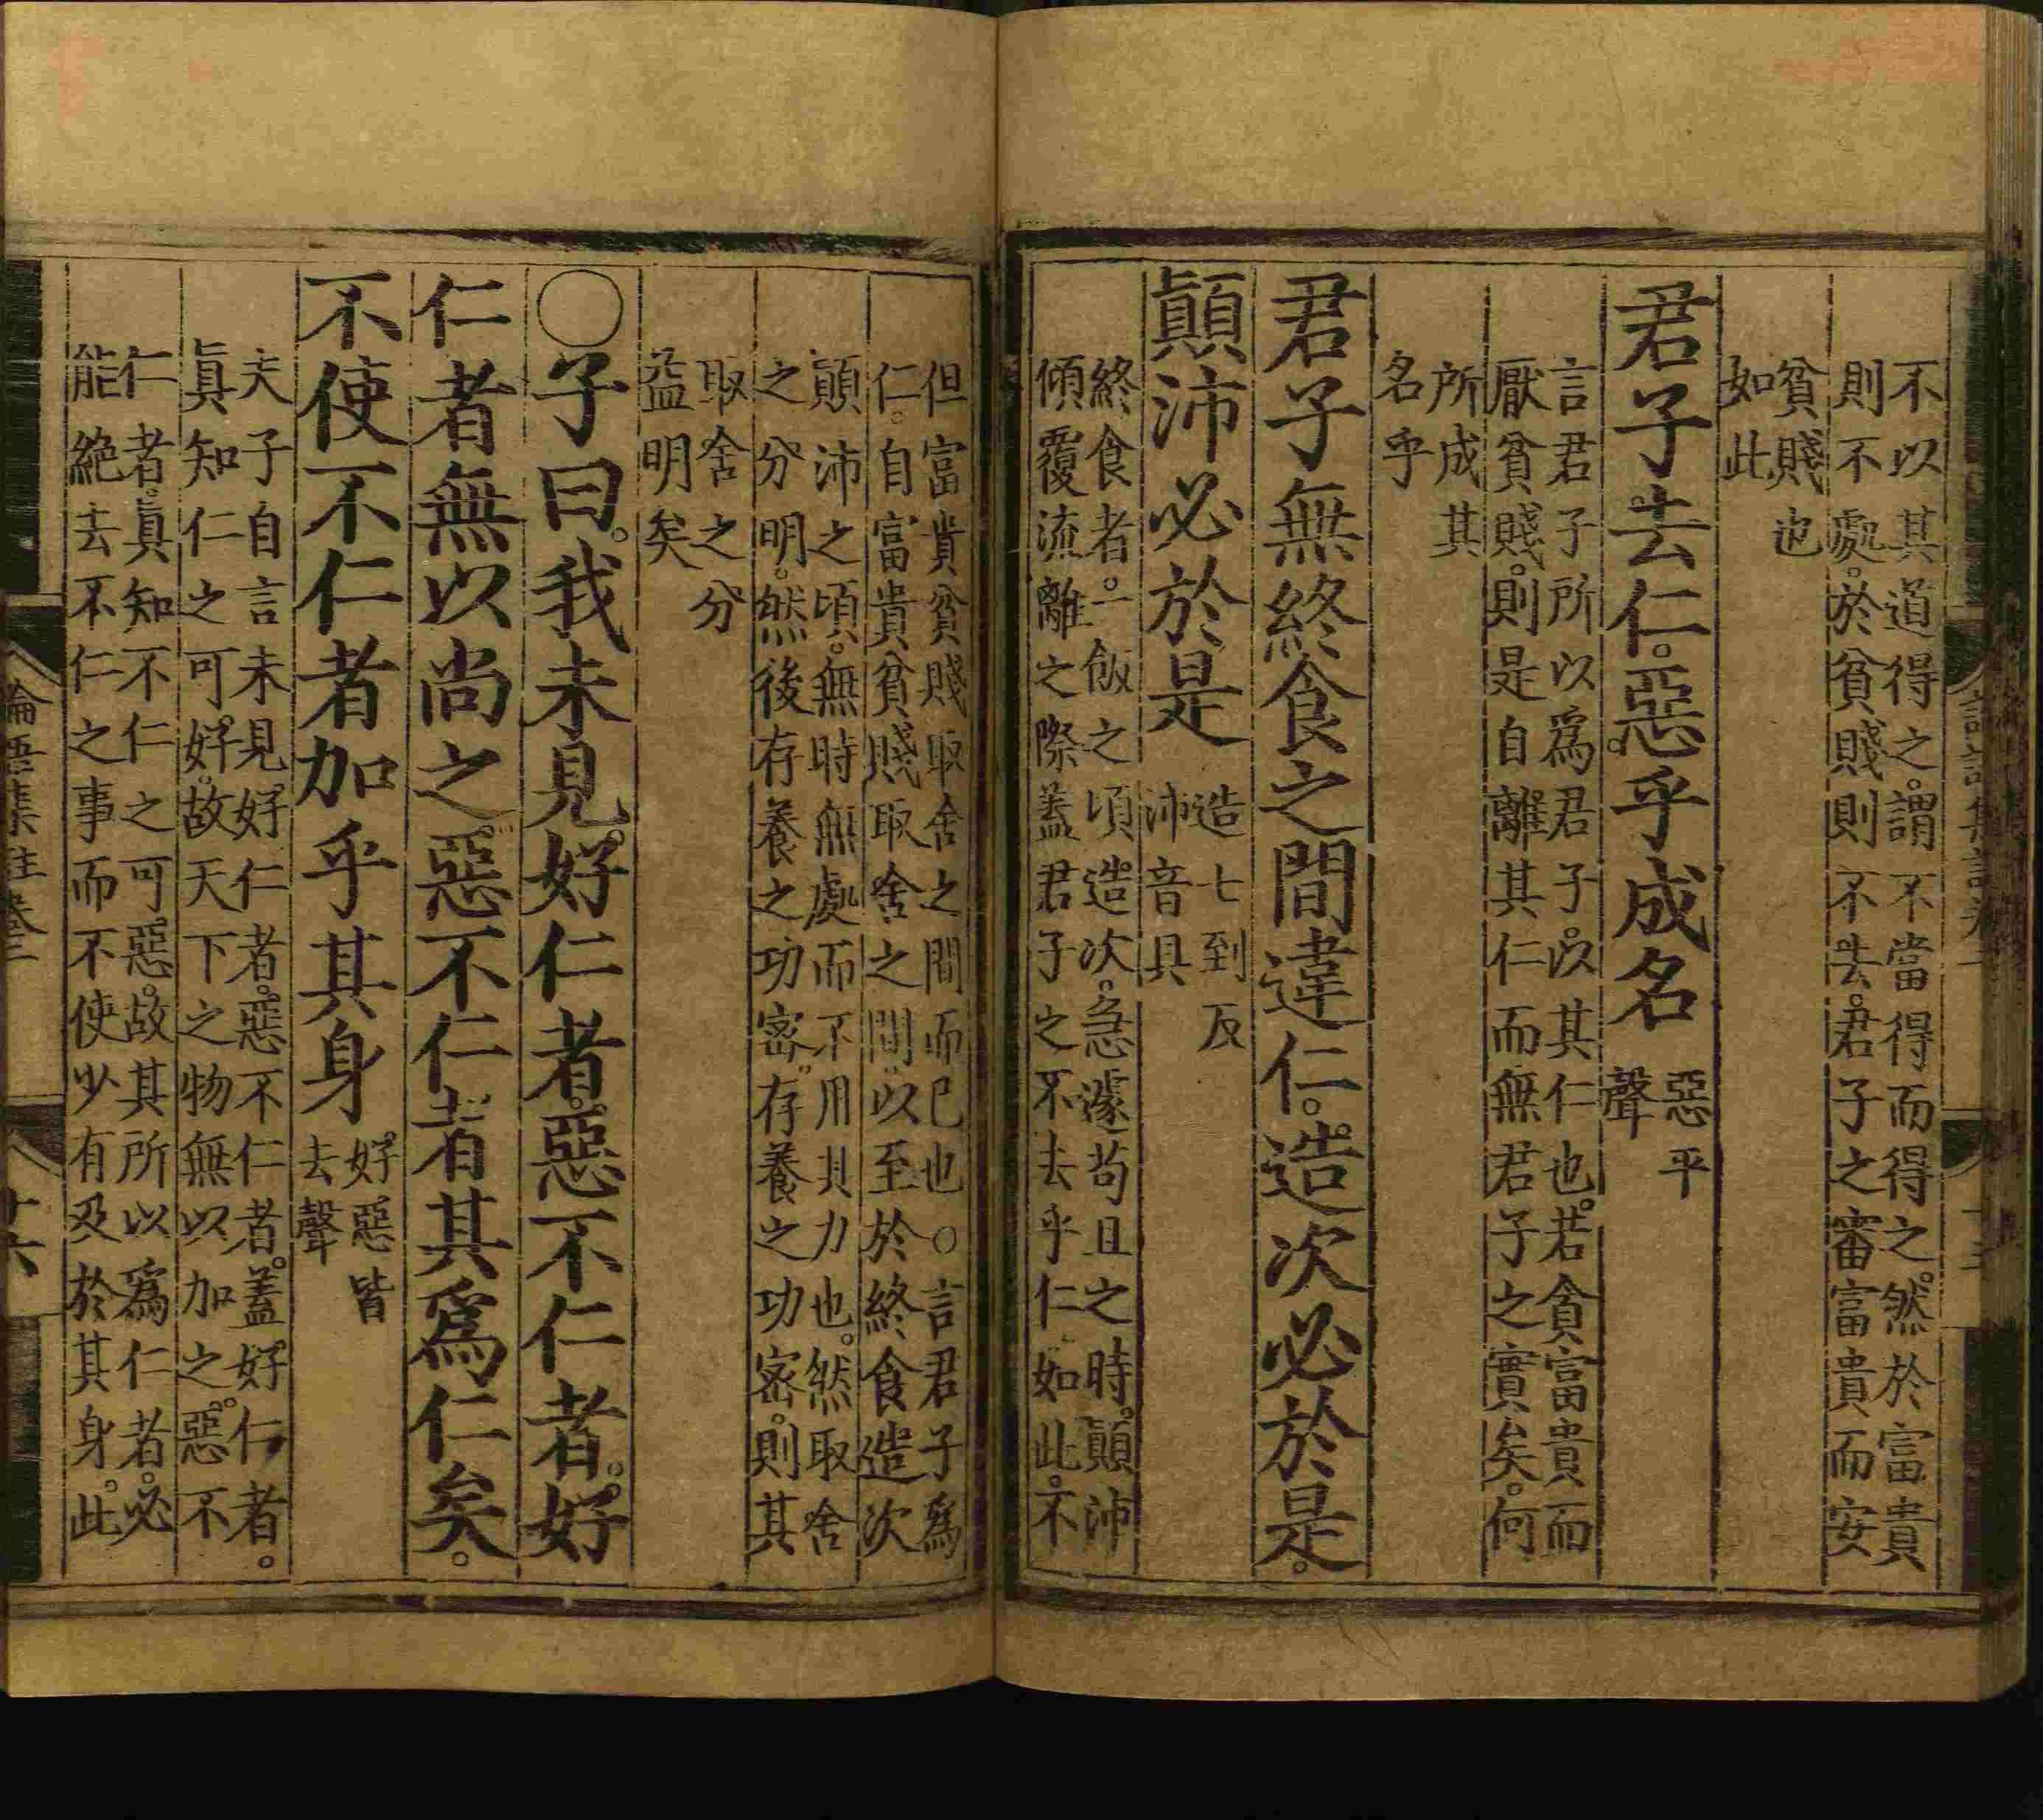 不以其道得之。謂不當得而得之。然於富貴
則不處。於貧賤則不去。君子之審富貴而安
貧賤也
如此
君子去仁。惡乎成名
惡平
聲
言君子所以爲君子。以其仁也。若貪富貴而
厭貧賤。則是自離其仁而無君子之實矣。何
所成其
名乎
君子無終食之間違仁。造次必於是。
顚沛必於是
造七到反
沛音具
終食者。一飯之頃。造次。急遽苟且之時。顚沛
傾覆流離之際。蓋君子之不去乎仁如此。不
但富貴貧賤取舍之間而已也。○言君子爲
仁。自富貴貧賤取舍之間。以至於終食造次
顚沛之頃。無時無處而不用其力也。然取舍
之分明。然後存養之功密。存養之功密。則其
取舍之分
益明矣
○子曰。我未見好仁者。惡不仁者。好
仁者無以尚之。惡不仁者其爲仁矣。
不使不仁者加乎其身
好惡皆
去聲
夫子自言未見好仁者。惡不仁者。蓋好仁者。
眞知仁之可好。故天下之物無以加之。惡不
仁者。眞知不仁之可惡。故其所以爲仁者。必
能絶去不仁之事而不使少有及於其身。此
論語集註卷二
十六